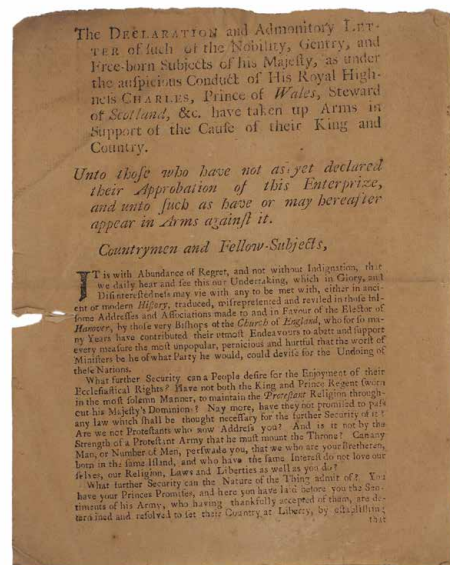 The DECLARATION and Admonitory LET-
TER of such of the Nobility, Gentry, and
Free-born Subjects of his Majesty, as under
the auspicious Conduct of His Royal High-
ness CHARLES, Prince of Wales, Steward
of Scotland, &c. have taken up Arms in
Support of the Cause of their King and
Country.
Unto those who have not as yet declared
their Approbation of this Enterprize,
and unto such as have or may hereafter
appear in Arms against it.
Countrymen and Fellow-Subjects,
IT is with Abundance of Regret, and not without Indignation, that
we daily hear and see this our Undertaking, which in Glory, and
Disinterestedness may vie with any to be met with, either in anci-
ent or modern History, traduced, misrepresented and reviled in those ful-
some Addresses and Associations made to and in Favour of the Elector of
Hanover, by those very Bishops of the Church of England, who for so ma-
ny Years have contributed their utmost Endeavours to abett and support
every measure the most unpopular, pernicious and hurtful that the worst of
Ministers be he of what Party he would, could devise for the Undoing of
these Nations.
What further Security can a People desire for the Enjoyment of their
Ecclesiastical Rights? Have not both the King and Prince Regent sworn
in the most solemn Manner, to maintain the Protestant Religion through-
out his Majesty's Dominions? Nay more, have they not promised to pass
any law which shall be thought necessary for the further Security of it?
Are we not Protestants who now Address you? And is it not by the
Strength of a Protestant Army that he must mount the Throne? Can any
Man, or Number of Men, perswade you, that we who are your Bretheren,
born in the same Island, and who have the same Interest do not love our
selves, our Religion, Laws and Liberties as well as you do?
What further Security can the Nature of the Thing admit of? You
have your Princes Promises, and here you have laid before you the Sen-
timents of his Army, who having thankfully accepted of them, are de-
termined and resolved to set their Country at Liberty, by establishing
that